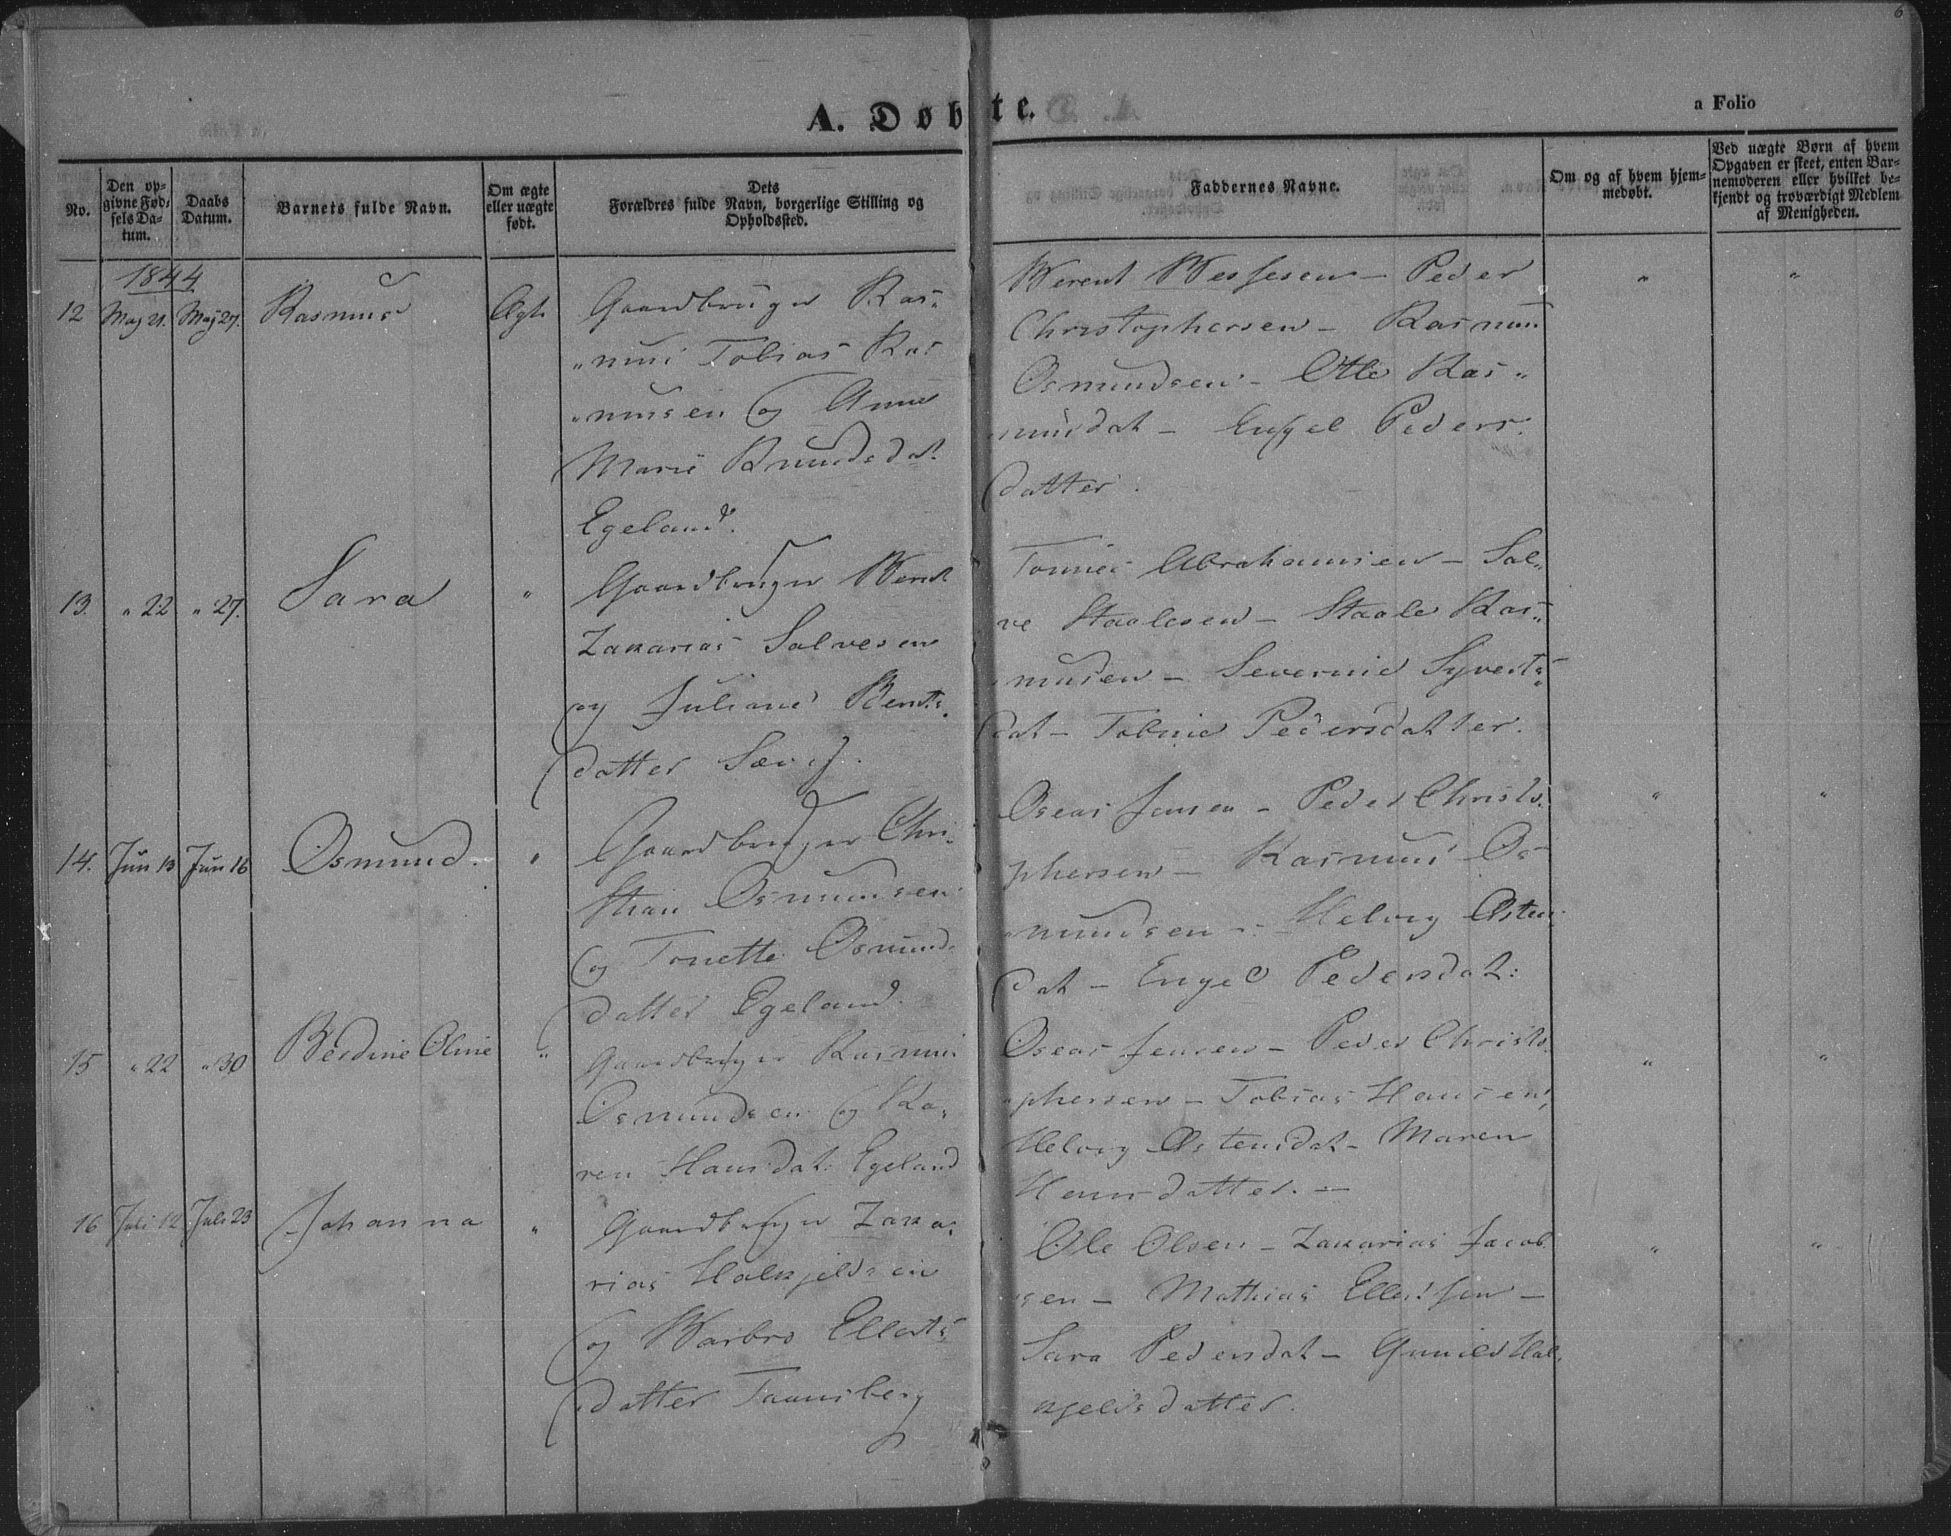 6
A. Døbte.
a Folio
No.
Den op-
givne Fød-
sels Da-
tum.
Daabs
Datum.
Barnets fulde Navn.
Om ægte
eller uægte
født.
Dets
Forældres fulde Navn, borgerlige Stilling og
Opholdssted.
Faddernes Navne.
Om og af hvem hjem-
medøbt.
Ved uægte Børn af hvem
Opgaven er skeet, enten Bar-
nemoderen eller hvilket be-
kjendt og troværdigt Medlem
af Menigheden.
1844
12 Maj 21. Maj 27. Rasmus Ægte
Gaardbruger Ras-
mus Tobias Ras
musen og Anne
Marie Knudsdat
Egeland.
Berent Bessesen - Peder
Christophersen - Rasmus
Osmundsen - Otle Ras-
musdat - Engel Peders
datter.
" "
13. " 22 " 27. Sara "
Gaardbruger Bernt
Zakarias Salvesen
og Juliane Bernts
datter
Tønnes Abrahamsen - Sal-
ve Staalesen - Staale Ras-
musen - Severine Syverts
dat - Tobine Pedersdatter.
14. Juni 13 Juni 16 Osmund. "
Gaardbruger Chri-
stian Osmundsen
og Tonette Osmunds
datter Egeland.
Oseas Jensen - Peder Christo-
phersen - Rasmus Os
mundsen - Helvig Østens
dat - Engel Pedersdat:
" "
15 " 22 " 30 Berdine Oline "
Gaardbruger Rasmus
Osmundsen og Ka-
ren Hansdat: Egeland
Oseas Jensen - Peder Christo-
phersen - Tobias Hansen,
Helvig Østensdat - Maren
Hansdatter. -
" "
16 Juli 12 Juli 23 Johanna "
Gaardbruger Zaka-
rias Halkjeldsen
og Barbro Ellerts
datter Faansberg
Ole Olsen - Zakarias Jacob
sen - Mathias Ellertsen -
Sara Pedersdat - Gunild Hal-
kjeldsdatter.
" "